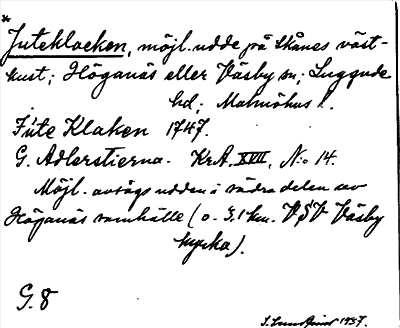 *
Juteklacken, möjl. udde på Skånes väst-
kust; Höganäs eller Väsby sn; Luggude
hd; Malmöhus l.
Jute Klaken 1747.
G. Adlerstierna. Kr.A. XVII, N:o 14.
Möjl. avsågs udden i södra delen av
Höganäs samhälle (o. 3,1 km. VSV Väsby
kyrka).
G. 8
1937.